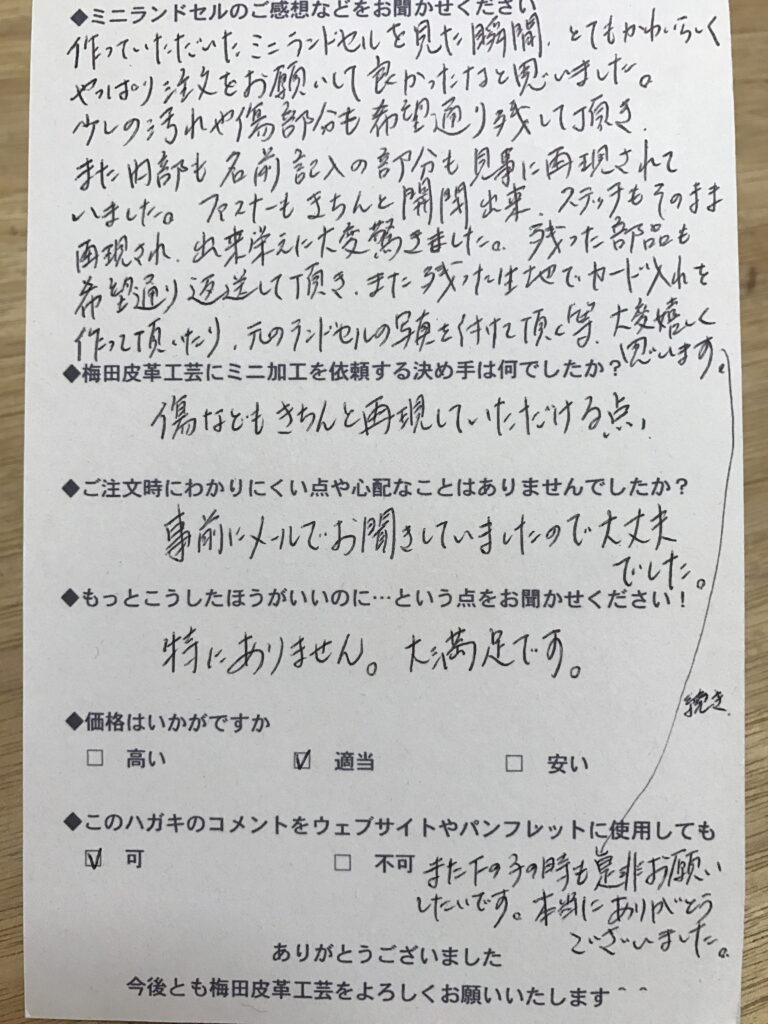 ◆ミニランドセルのご感想などをお聞かせください
作っていただいたミニランドセルを見た瞬間、とてもかわいらしく
やっぱり注文をお願いして良かったなと思いました。
少しの汚れや傷部分も希望通り残して頂き、
また内部も名前記入の部分も見事に再現されて
いました。ファスナーもきちんと開閉出来、ステッチもそのまま
再現され、出来栄えに大変驚きました。残った部品も
希望通り返送して頂き、また残った生地でカード入れを
作って頂いたり、元のランドセルの写真を付けて頂く等、大変嬉しく
思います。
◆梅田皮革工芸にミニ加工を依頼する決め手は何でしたか?
傷などもきちんと再現していただける点、
◆ご注文時にわかりにくい点や心配なことはありませんでしたか?
事前にメールでお聞きしていましたので大丈夫
でした。
◆もっとこうしたほうがいいのに…という点をお聞かせください!
特にありません。大満足です。
続き
◆価格はいかがですか
□ 高い ☑ 適当 □ 安い
◆このハガキのコメントをウェブサイトやパンフレットに使用しても
☑ 可 □ 不可
また下の子の時も是非お願い
したいです。本当にありがとう
ございました。
ありがとうございました
今後とも梅田皮革工芸をよろしくお願いいたします＾＾